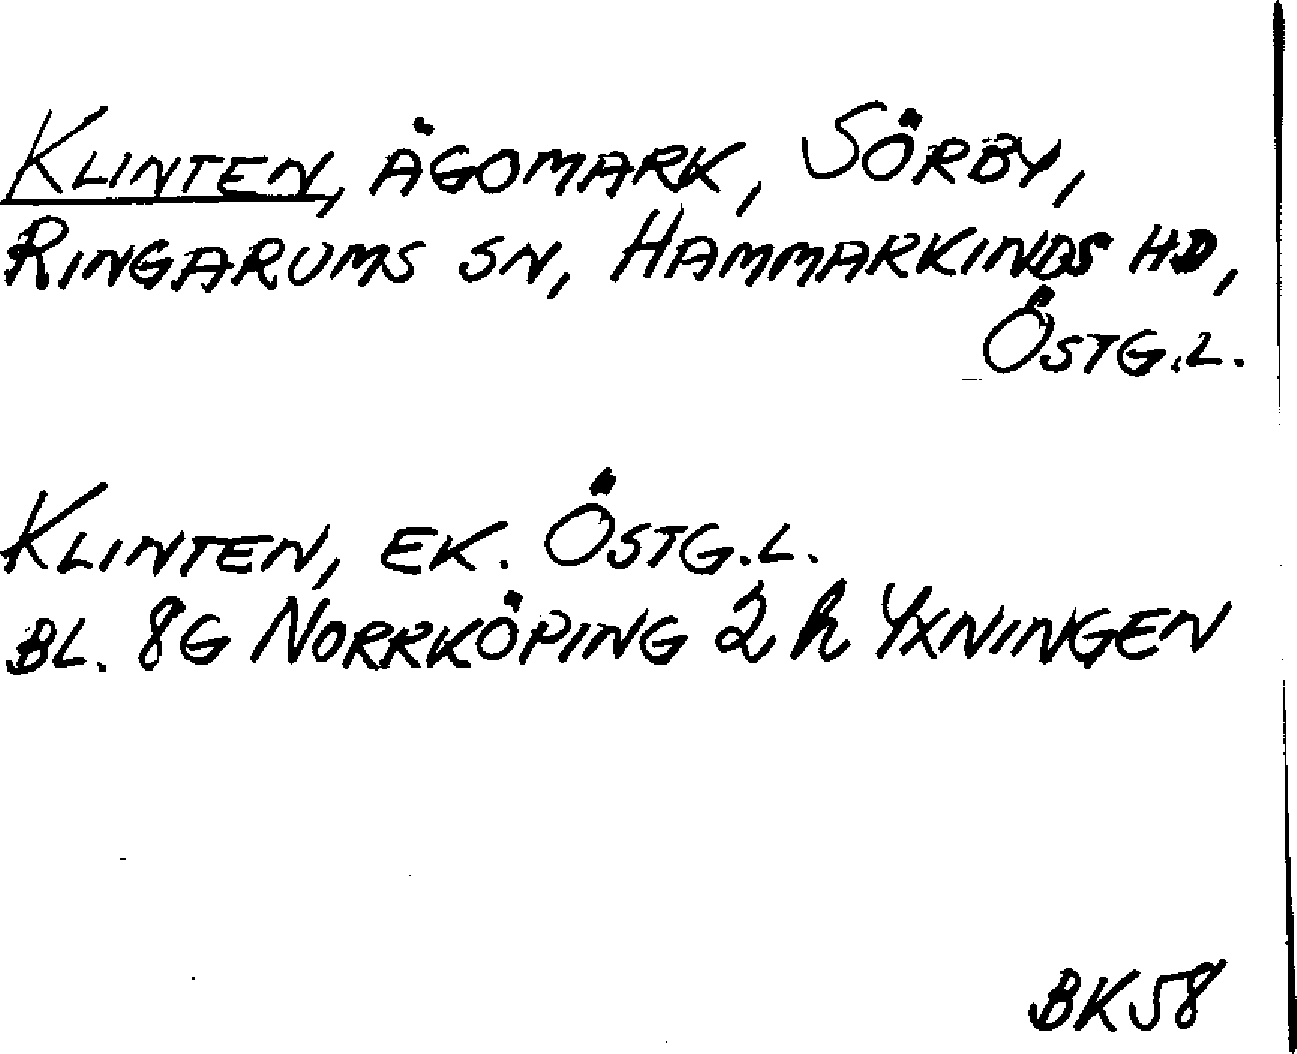 KLINTEN, ÄGOMARK, SÖRBY,
RINGARUMS SN, HAMMARKINDS HD,
ÖSTG.L.
KLINTEN, EK. ÖSTG.L.
BL. 8G NORRKÖPING 2 h YXNINGEN
BK58